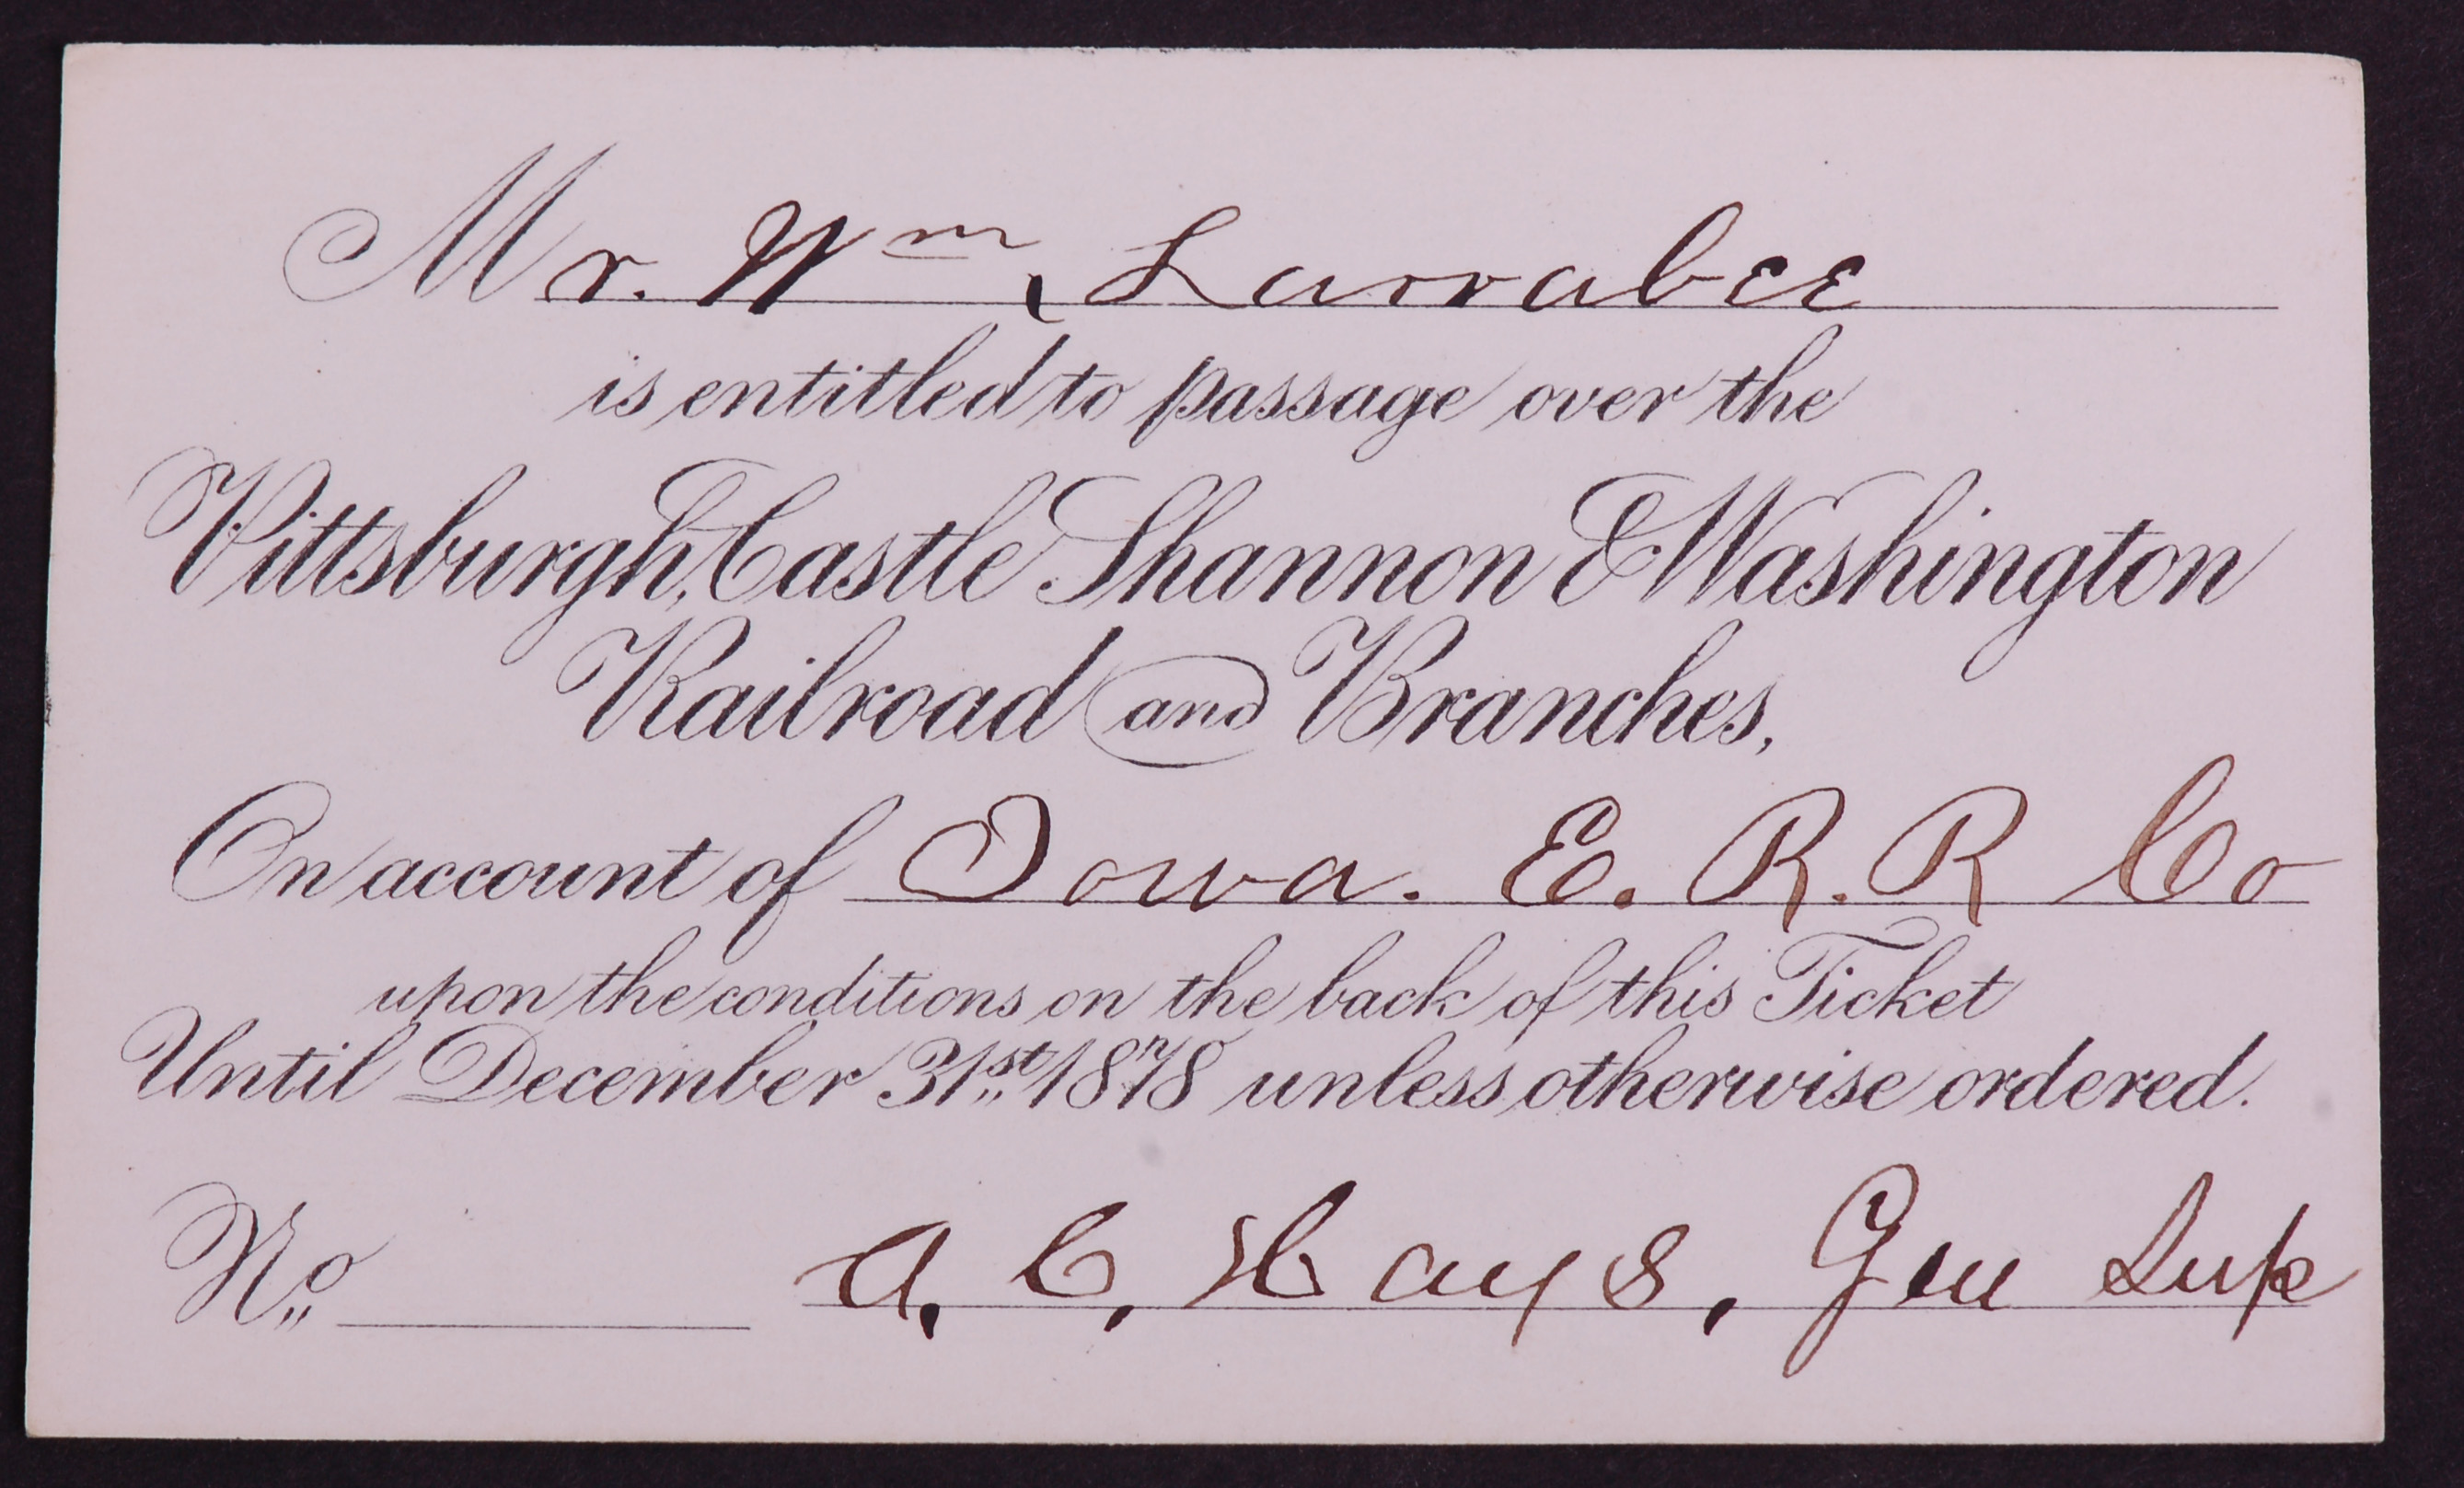 Mr. Wm, Larrabee
is entitled to passage over the
Pittsburgh, Castle Shannon & Washington
Railroad and Branches,
On account of Iowa. E. R. R Co
upon the conditions on the back of this Ticket
Until December 31st 1878 unless otherwise ordered.
No. A. C, Hays, Gen Sup